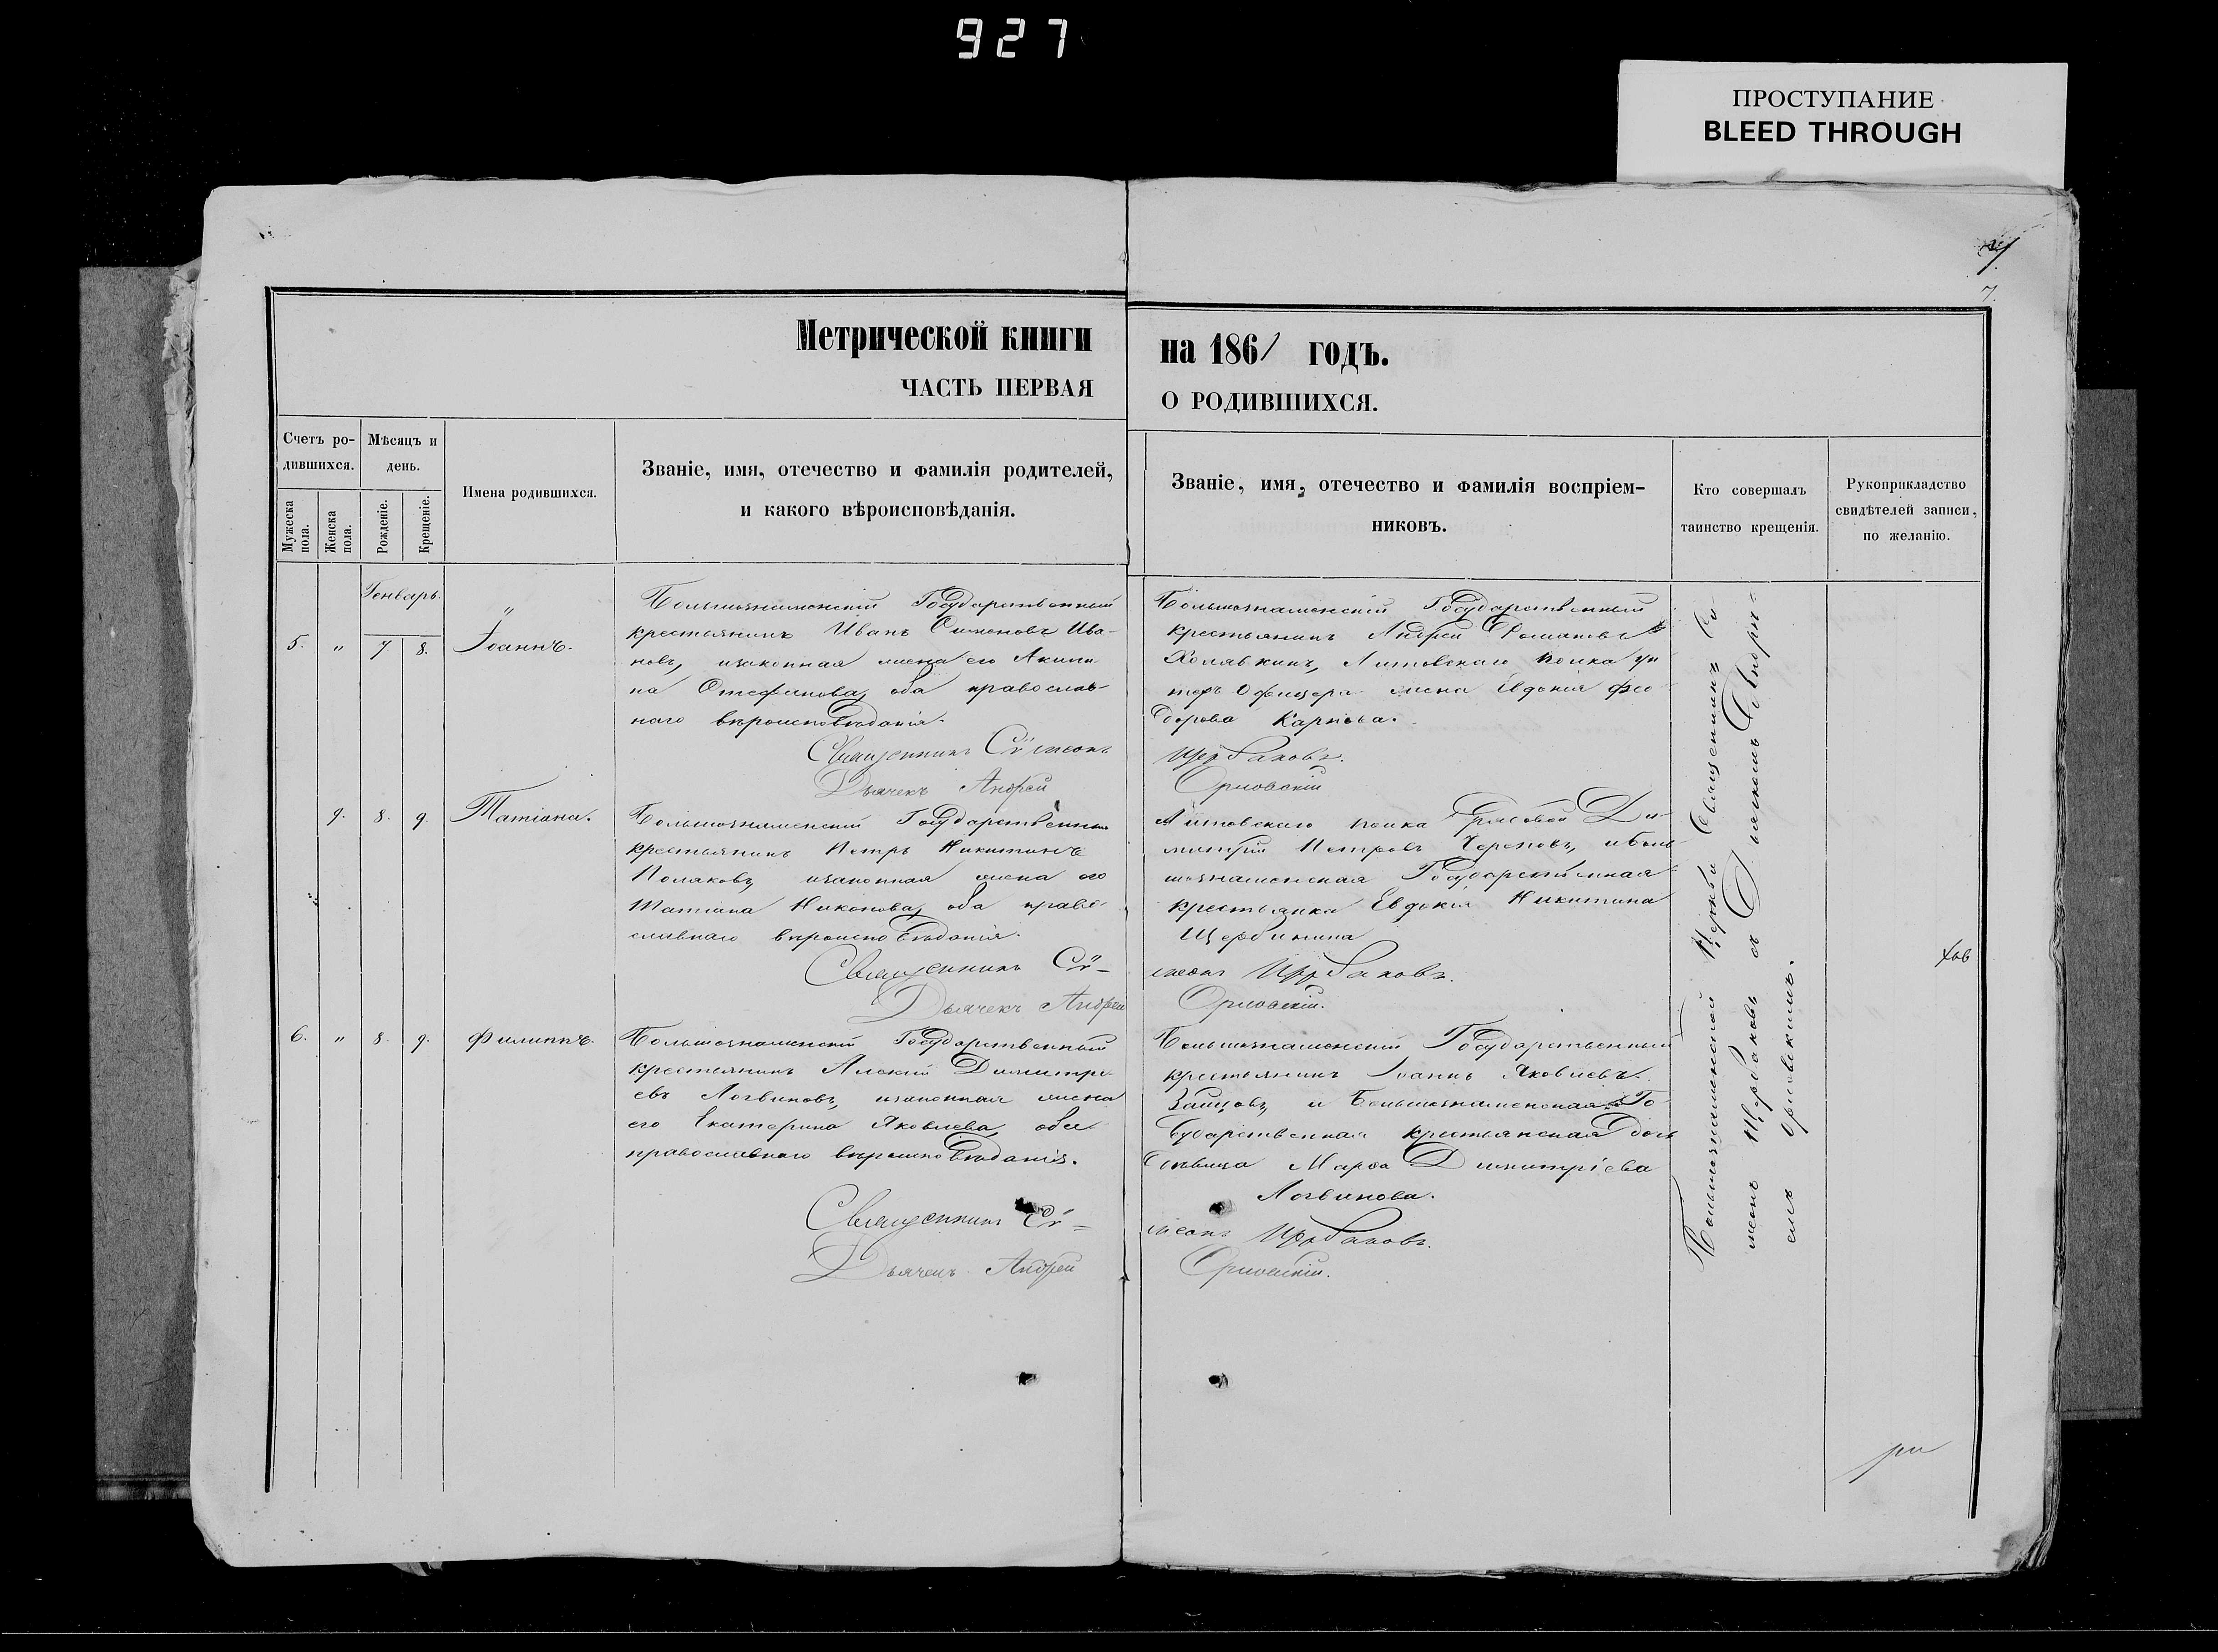 927
ПРОСТУПАНИЕ
BLEED THROUGH
7.
Метрической книги на 1861 годъ.
ЧАСТЬ ПЕРВАЯ О РОДИВШИХСЯ.
Счетъ родившихся.
Мужеска пола.
Женска пола.
Мѣсяцъ и день.
Рожденіе.
Крещеніе.
Имена родившихся.
Званіе, имя, отечество и фамилія родителей,
и какого вѣроисповѣданія.
Званіе, имя, отечество и фамилія воспріем-
никовъ.
Кто совершалъ
таинство крещенія.
Рукоприкладство
свидѣтелей записи,
по желанію.
Генварь.
5. " 7 8. Іоаннъ.
Большознаменскій Государственный
крестьянинъ Иванъ Симеоновъ Ива-
новъ, изаконная жена его Акили-
на Стефанова, оба православ-
наго вѣроисповѣданія.
Священникъ Сѵмеонъ
Дьячекъ Андрей
Большознаменскій Государственный
крестьянинъ Андрей Романовъ
Холявкинъ, Литовскаго полка ун
теръ Офицера жена Евдокія Фео
дорова Карпова.
Щербаковъ.
Орловскій
9. 8. 9. Татіана.
Большознаменскій Государственный
крестьянинъ Петръ Никитинъ
Поляковъ, изаконная жена его
Татіана Никонова, оба право
славнаго вѣроисповѣданія.
Священникъ Сѵ-
Дьячекъ Андрей
Литовскаго полка Рядовой Ди-
митрій Петровъ Череповъ, иболь
шознаменская Государственная
крестьянка Евдокія Никитина
Щербинина
меонъ Щербаковъ.
Орловскій.
6. " 8. 9. Филиппъ.
Большознаменскій Государственный
крестьянинъ Алексій Димитрі
евъ Логвиновъ, изаконная жена
его Екатерина Яковлева, обое
православнаго вѣроисповѣданія.
Священникъ Сѵ-
Дьячекъ Андрей
Большознаменскій Государственный
крестьянинъ Іоаннъ Яковлевъ
Зайцовъ, и Большознаменская Го
сударственная крестьянская дочь
дѣвица Марѳа Димитріева
Логвинова.
меонъ Щербаковъ.
Орловскій.
Большознаменской Церкви Священникъ Сѵ-
меонъ Щербаковъ съ Дьячкомъ Андре-
емъ Орловскимъ.